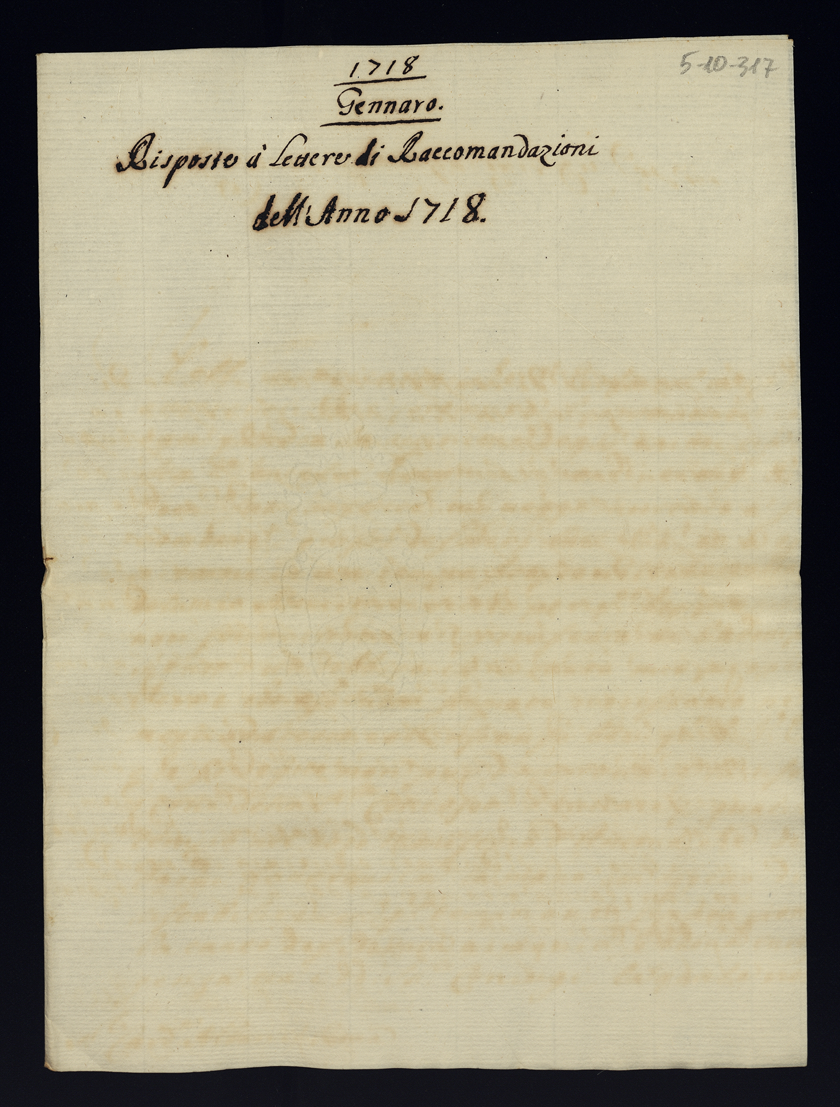 5-10-317
1718
Gennaro.
Risposte à Lettere di Raccomandazioni
dell'Anno 1718.